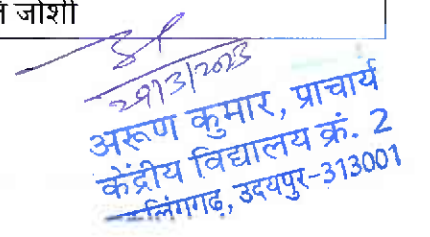 जोशी
29/3/2023
अरूण कुमार, प्राचार्य
केंद्रीय विद्यालय क्रं. 2
उदयपुर-313001